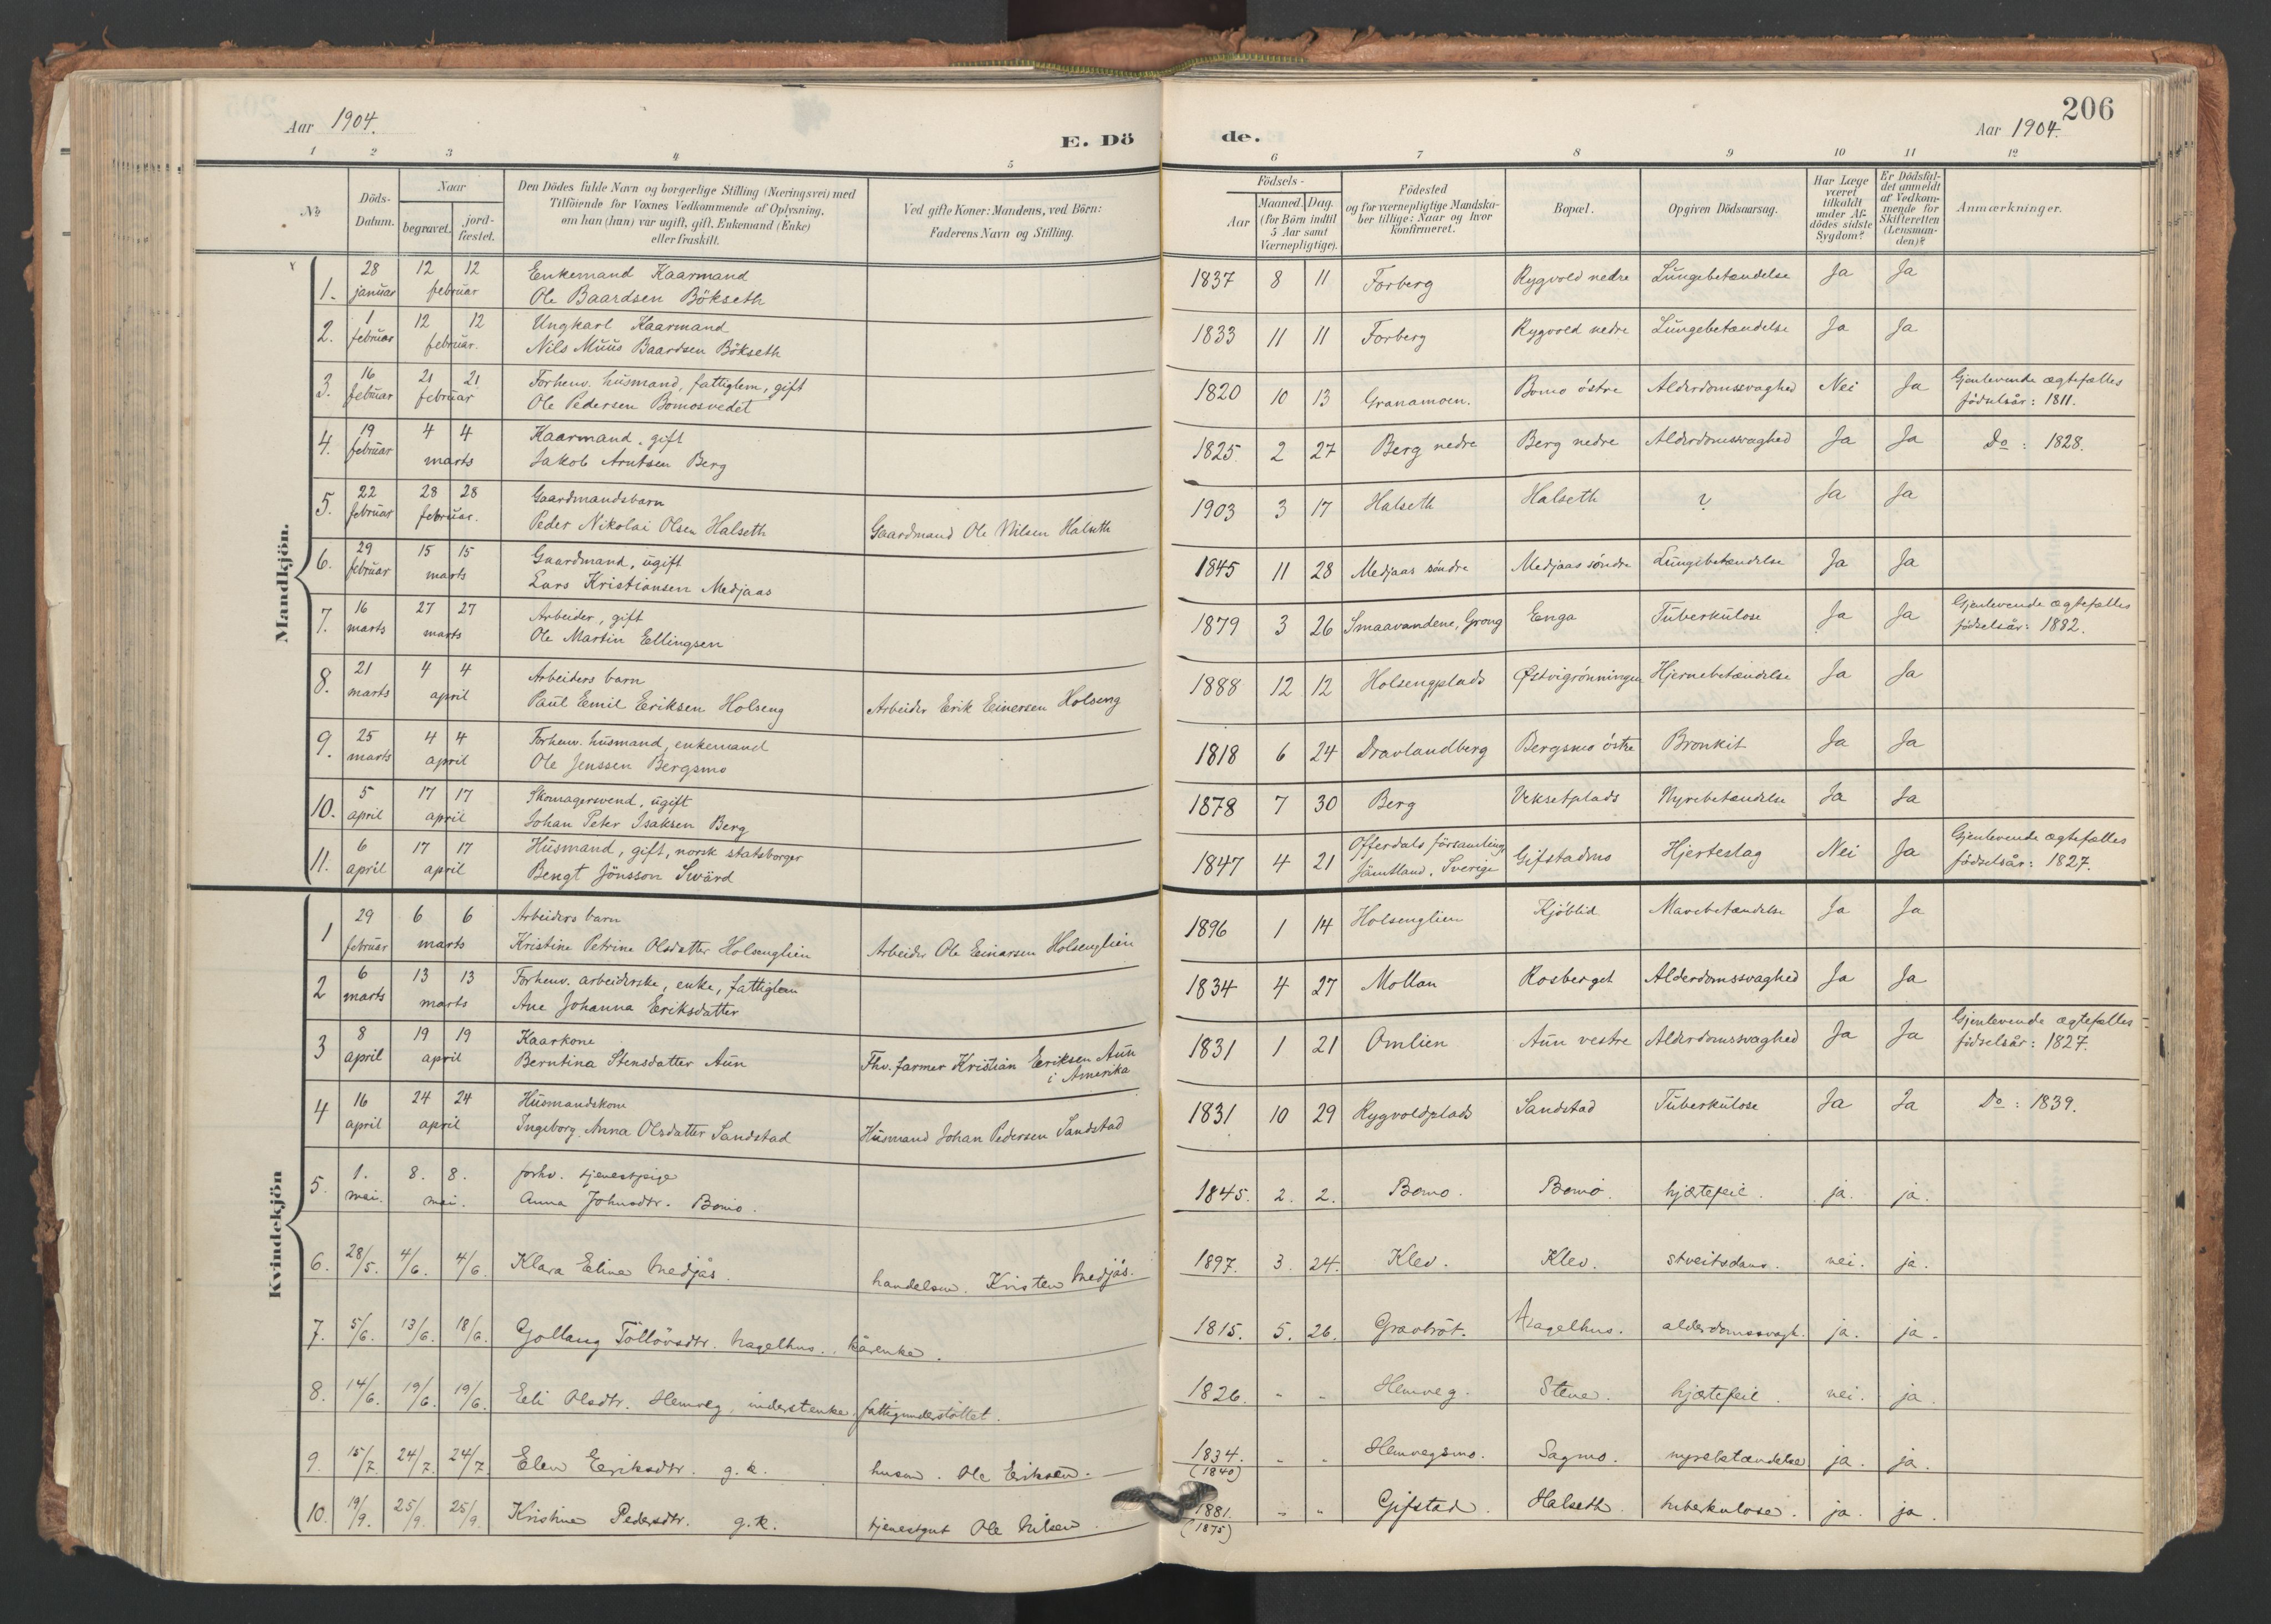 206
Aar 1904.
E. Dö
de.
Aar 1904.
1 2 3 4 5 6 7 8 9 10 11 12
No
Döds-
Datum.
Naar
begravet.
jord-
fæstet.
Den Dödes fulde Navn og borgerlige Stilling (Næringsvei) med
Tilföiende for Voxnes Vedkommende af Oplysning,
om han (hun) var ugift, gift, Enkemand (Enke)
eller fraskilt.
Ved gifte Koner: Mandens, ved Börn:
Faderens Navn og Stilling.
Födsels-
Aar
Maaned. Dag.
(for Börn indtil
5 Aar samt
Værnepligtige).
Födested
og for værnepligtige Mandska-
ber tillige: Naar og hvor
Konfirmeret.
Bopæl.
Opgiven Dödsaarsag.
Har Læge
været
tilkaldt
under Af-
dödes sidste
Sygdom?
Er Dödsfal-
det anmeldt
af Vedkom-
mende for
Skifteretten
(Lensman-
den)?
Anmærkninger.
Mandkjön.
28 12 12 Enkemand Kaarmand
1. januar februar Ole Baardsen Bökseth
1837 8 11 Forberg Rygvold nedre Lungebetændelse Ja Ja
1 12 12 Ungkarl Kaarmand
2. februar februar. Nils Muus Baardsen Bökseth
1833 11 11 Forberg Rygvold nedre Lungebetændelse Ja Ja
16 21 21 Forhenv. husmand, fattiglem, gift
3. februar februar Ole Pedersen Bomosvedet
1820 10 13 Granamoen. Bomo östre Alderdomssvaghed Nei Ja Gjenlevende ægtefælles
födselsår: 1811.
19 4 4 Kaarmand, gift
4. februar marts Jakob Arntsen Berg
1825 2 27 Berg nedre Berg nedre Alderdomssvaghed Ja Ja Do : 1828.
22 28 28 Gaardmandsbarn
5. februar februar. Peder Nikolai Olsen Halseth Gaardmand Ole Nilsen Halseth
1903 3 17 Halseth Halseth ? Ja Ja
29 15 15 Gaardmand, ugift
6. februar marts Lars Kristiansen Medjaas
1845 11 28 Medjaas söndre Medjaas söndre Lungebetændelse Ja Ja
16 27 27 Arbeider, gift
7. marts marts Ole Martin Ellingsen
1879 3 26 Smaavandene, Grong Enga Tuberkulose Ja Ja Gjenlevende ægtefælles
födselsår: 1882.
21 4 4 Arbeiders barn
8. marts april Paul Emil Eriksen Holseng Arbeider Erik Einersen Holseng
1888 12 12 Holsengplads Østvigrønningen Hjernebetændelse Ja Ja
25 4 4 Forhenv. husmand, enkemand
9. marts april Ole Jenssen Bergsmo
1818 6 24 Dravlandberg Bergsmo östre Bronkit Ja Ja
5 17 17 Skomagersvend, ugift
10. april april Johan Peter Isaksen Berg
1878 7 30 Berg Veksetplads Nyrebetændelse Ja Ja
6 17 17 Husmand, gift, norsk statsborger
11. april april Bengt Jönsson Swärd
1847 4 21 Offerdals församling, Jämtland, Sverige Gifstadmo Hjerteslag Nei Ja Gjenlevende ægtefælles
födselsår: 1827.
Kvindekjön
29 6 6 Arbeiders barn
1 februar marts Kristine Petrine Olsdatter Holsenglien Arbeider Ole Einarsen Holsenglien
1896 1 14 Holsenglien Kjöblid Mavebetændelse Ja Ja
6 13 13 Forhenv. arbeiderske, enke, fattiglem
2 marts marts Ane Johanna Eriksdatter
1834 4 27 Mollan Rosberget Alderdomssvaghed Ja Ja
8 19 19 Kaarkone
3 april april Berntina Stensdatter Aun Fhv. farmer Kristian Eriksen Aun
i Amerika
1831 1 21 Omlien Aun vestre Alderdomssvaghed Ja Ja Gjenlevende ægtefælles
födselsår: 1827.
16 24 24 Husmandskone
4 april april Ingeborg Anna Olsdatter Sandstad Husmand Johan Pedersen Sandstad
1831 10 29 Rygvoldplads Sandstad Tuberkulose Ja Ja Do : 1839.
1. 8. 8. forhv. tjenestpige
5. mai. mai. Anna Johnsdtr. Bomo.
1845. 2. 2. Bomo. Bomo. hjertefeil. ja. ja.
6. 28/5. 4/6. 4/6. Klara Eline Medjås. handelsm. Kristen Medjås.
1897. 3. 24. Klev. Klev. stveitsdans. nei. ja.
7. 5/6. 13/6. 18/6. Gollaug Töllövsdtr. Hagelhus. kårenke.
1815. 5. 26. Gravbröt. Hagelhus. alderdomssvagh. ja. ja.
8. 14/6. 19/6. 19/6. Eli Olsdtr. Hemveg, inderstenke, fattigunderstöttet.
1826. - - Hemveg. Stene. hjertefeil. nei. ja
9. 15/7. 24/7. 24/7. Elen Eriksdtr. g.k. husm. Ole Eriksen.
1834. (1840) - - Hemvegsmo. Sagmo. nyrebetændelse ja. ja.
10. 19/9. 25/9. 25/9. Kristine Pedersdtr. g.k. tjenestgut Ole Nilsen.
1881. (1875) - - Gifstad. Halseth. tuberkulose. ja. ja.